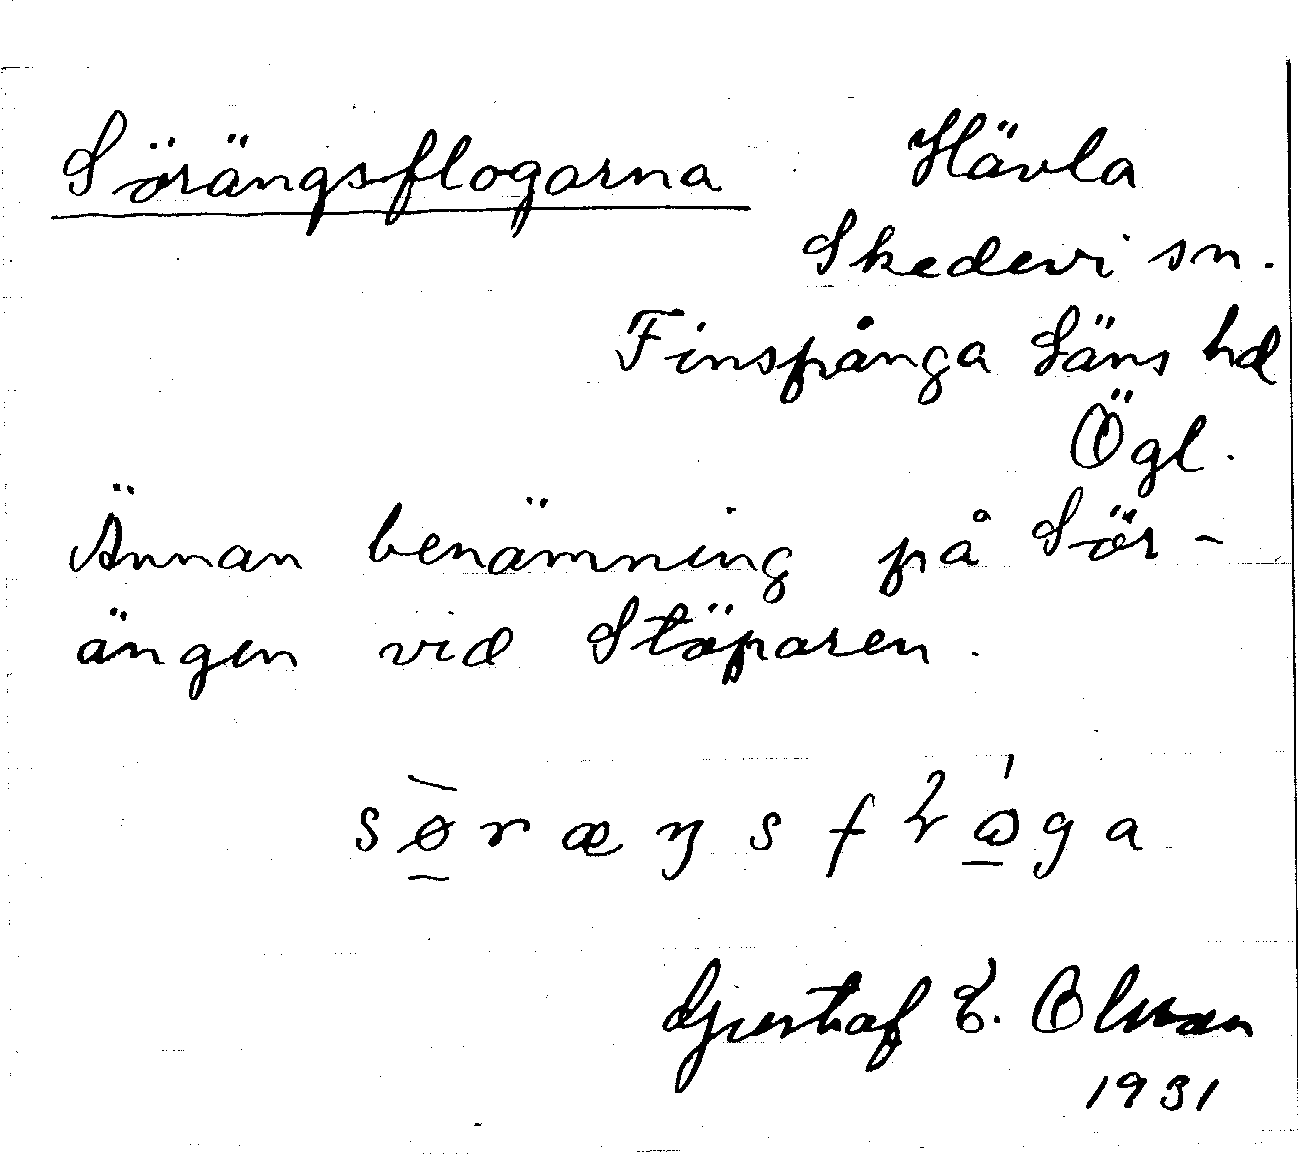 Sörängsflogarna Hävla
Skedevi sn.
Finspånga Läns hd
Ögl.
Annan benämning på Sör-
ängen vid Stöparen.
Gustaf E. Olsson
1931